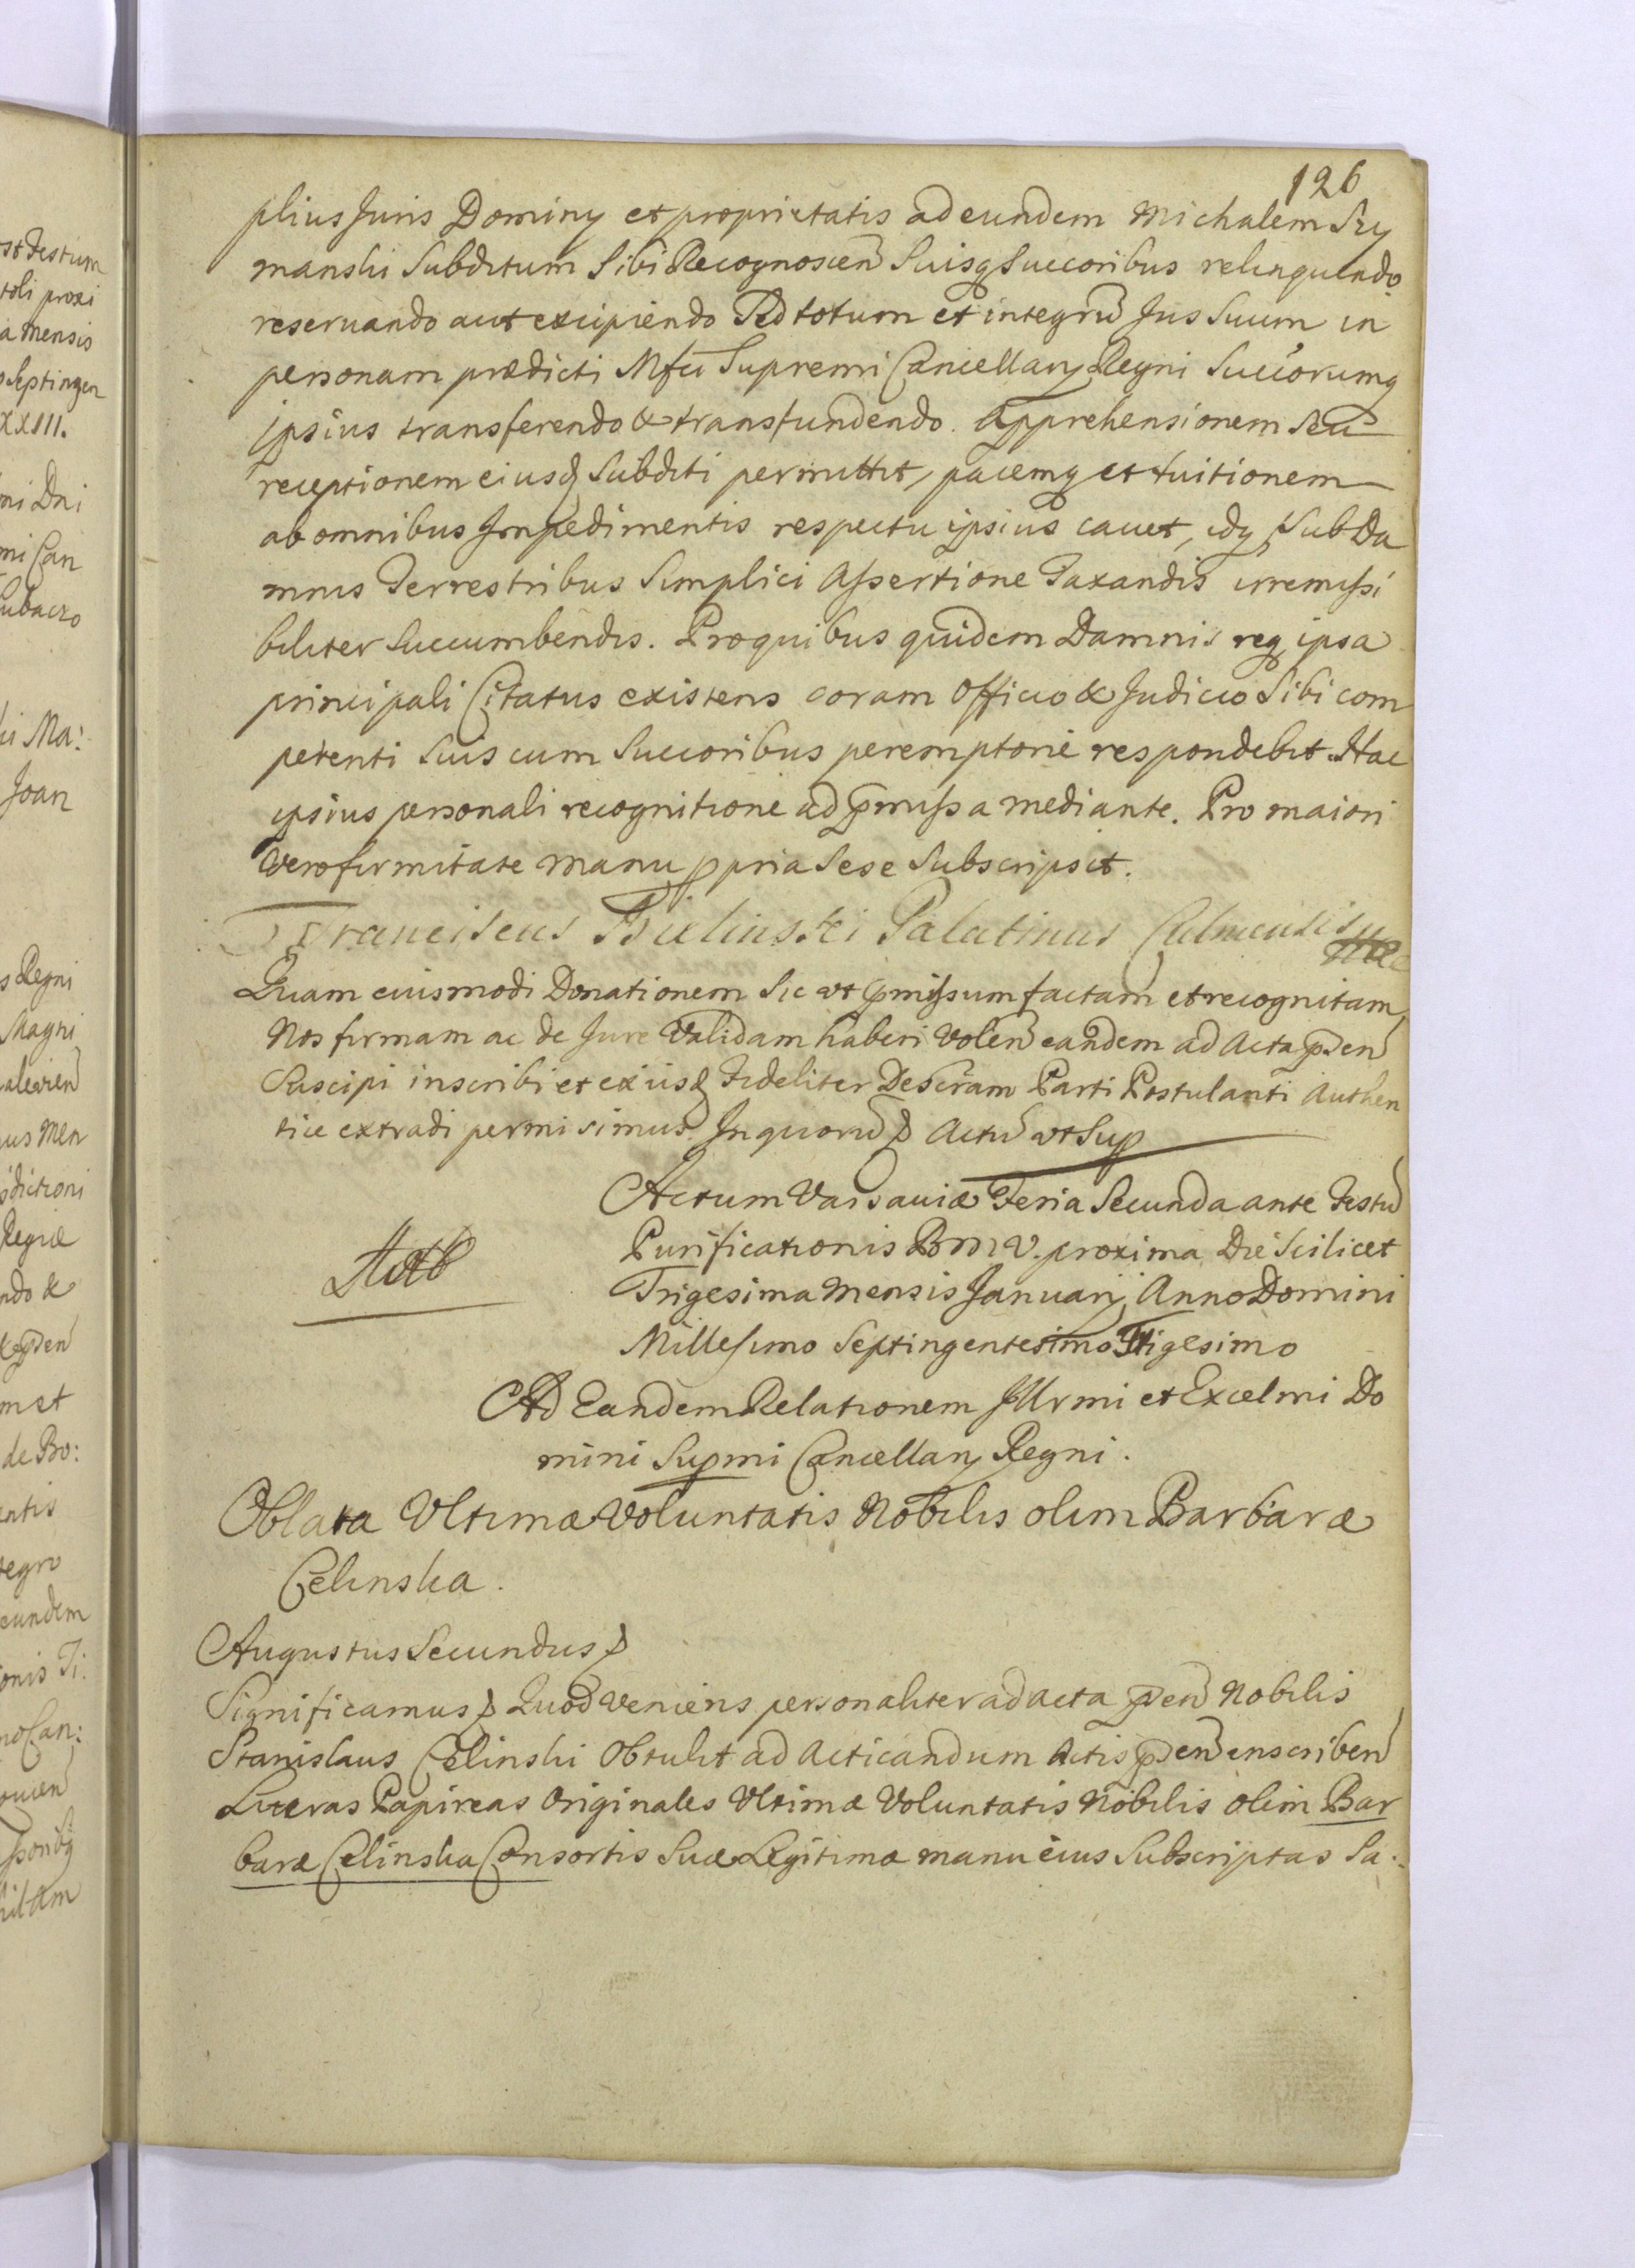 126
plius Juris Dominy et proprietatis ad eundem Michalem Szy
manski Subditum Sibi Recognoscen Suisq Succoribus relinquendo
reseruando aut excipiendo Sed totum et integru Jus Suum in
personam prædicti Mfci Supremi Cancellary Regni Succorumq
ipsius transferendo & transfundendo. Apprehensionem Seu
receptionem eiusd Subditi permittit, pacemq et tuitionem
ab omnibus Impedimentis respectu ipsius cauet, idq Sub Da
mnis Terrestribus Simplici Assertione Taxandis irremissi
biliter Succumbendis. Pro quibus quidem Damnis req ipsa
principali Citatus existens coram Officio & Judicio Sibi com
petenti Suis cum Succoribus peremptorie respondebit. Hac
ipsius personali recognitione ad pmissa mediante. Pro maiori
vero firmitate manu ppria Sese Subscripsit.
Franciscus Bielinski Palatinus Culmensis
Quam eiusmodi Donationem Sic vt pmissum factam et recognitam
Nos firmam ac de Jure Validam haberi Volen eandem ad Acta pden
Suscipi inscribi et exijsd Fideliter Descram Parti Postulanti Authen
tice extradi permisimus. In quoru Actu vt Sup
Actum Varsauiæ Feria Secunda ante Festu
Purificationis B M V. proxima Die Scilicet
Trigesima Mensis Januarij Anno Domini
Millesimo Septingentesimo Trigesimo
Ad Eandem Relationem Illrmi et Excelmi Do
mini Supmi Cancellary Regni.
Oblata Vltimæ Voluntatis Nobilis olim Barbaræ
Celinska.
Augustus Secundus
Significamus Quod Veniens personaliter ad acta pden Nobilis
Stanislaus Celinski Obtulit ad Acticandum Actis pden inscriben
Literas Papireas Originales Vltimæ Voluntatis Nobilis olim Bar
baræ Celinska Consortis Suæ Legitimæ manu eius Subscriptas Sa